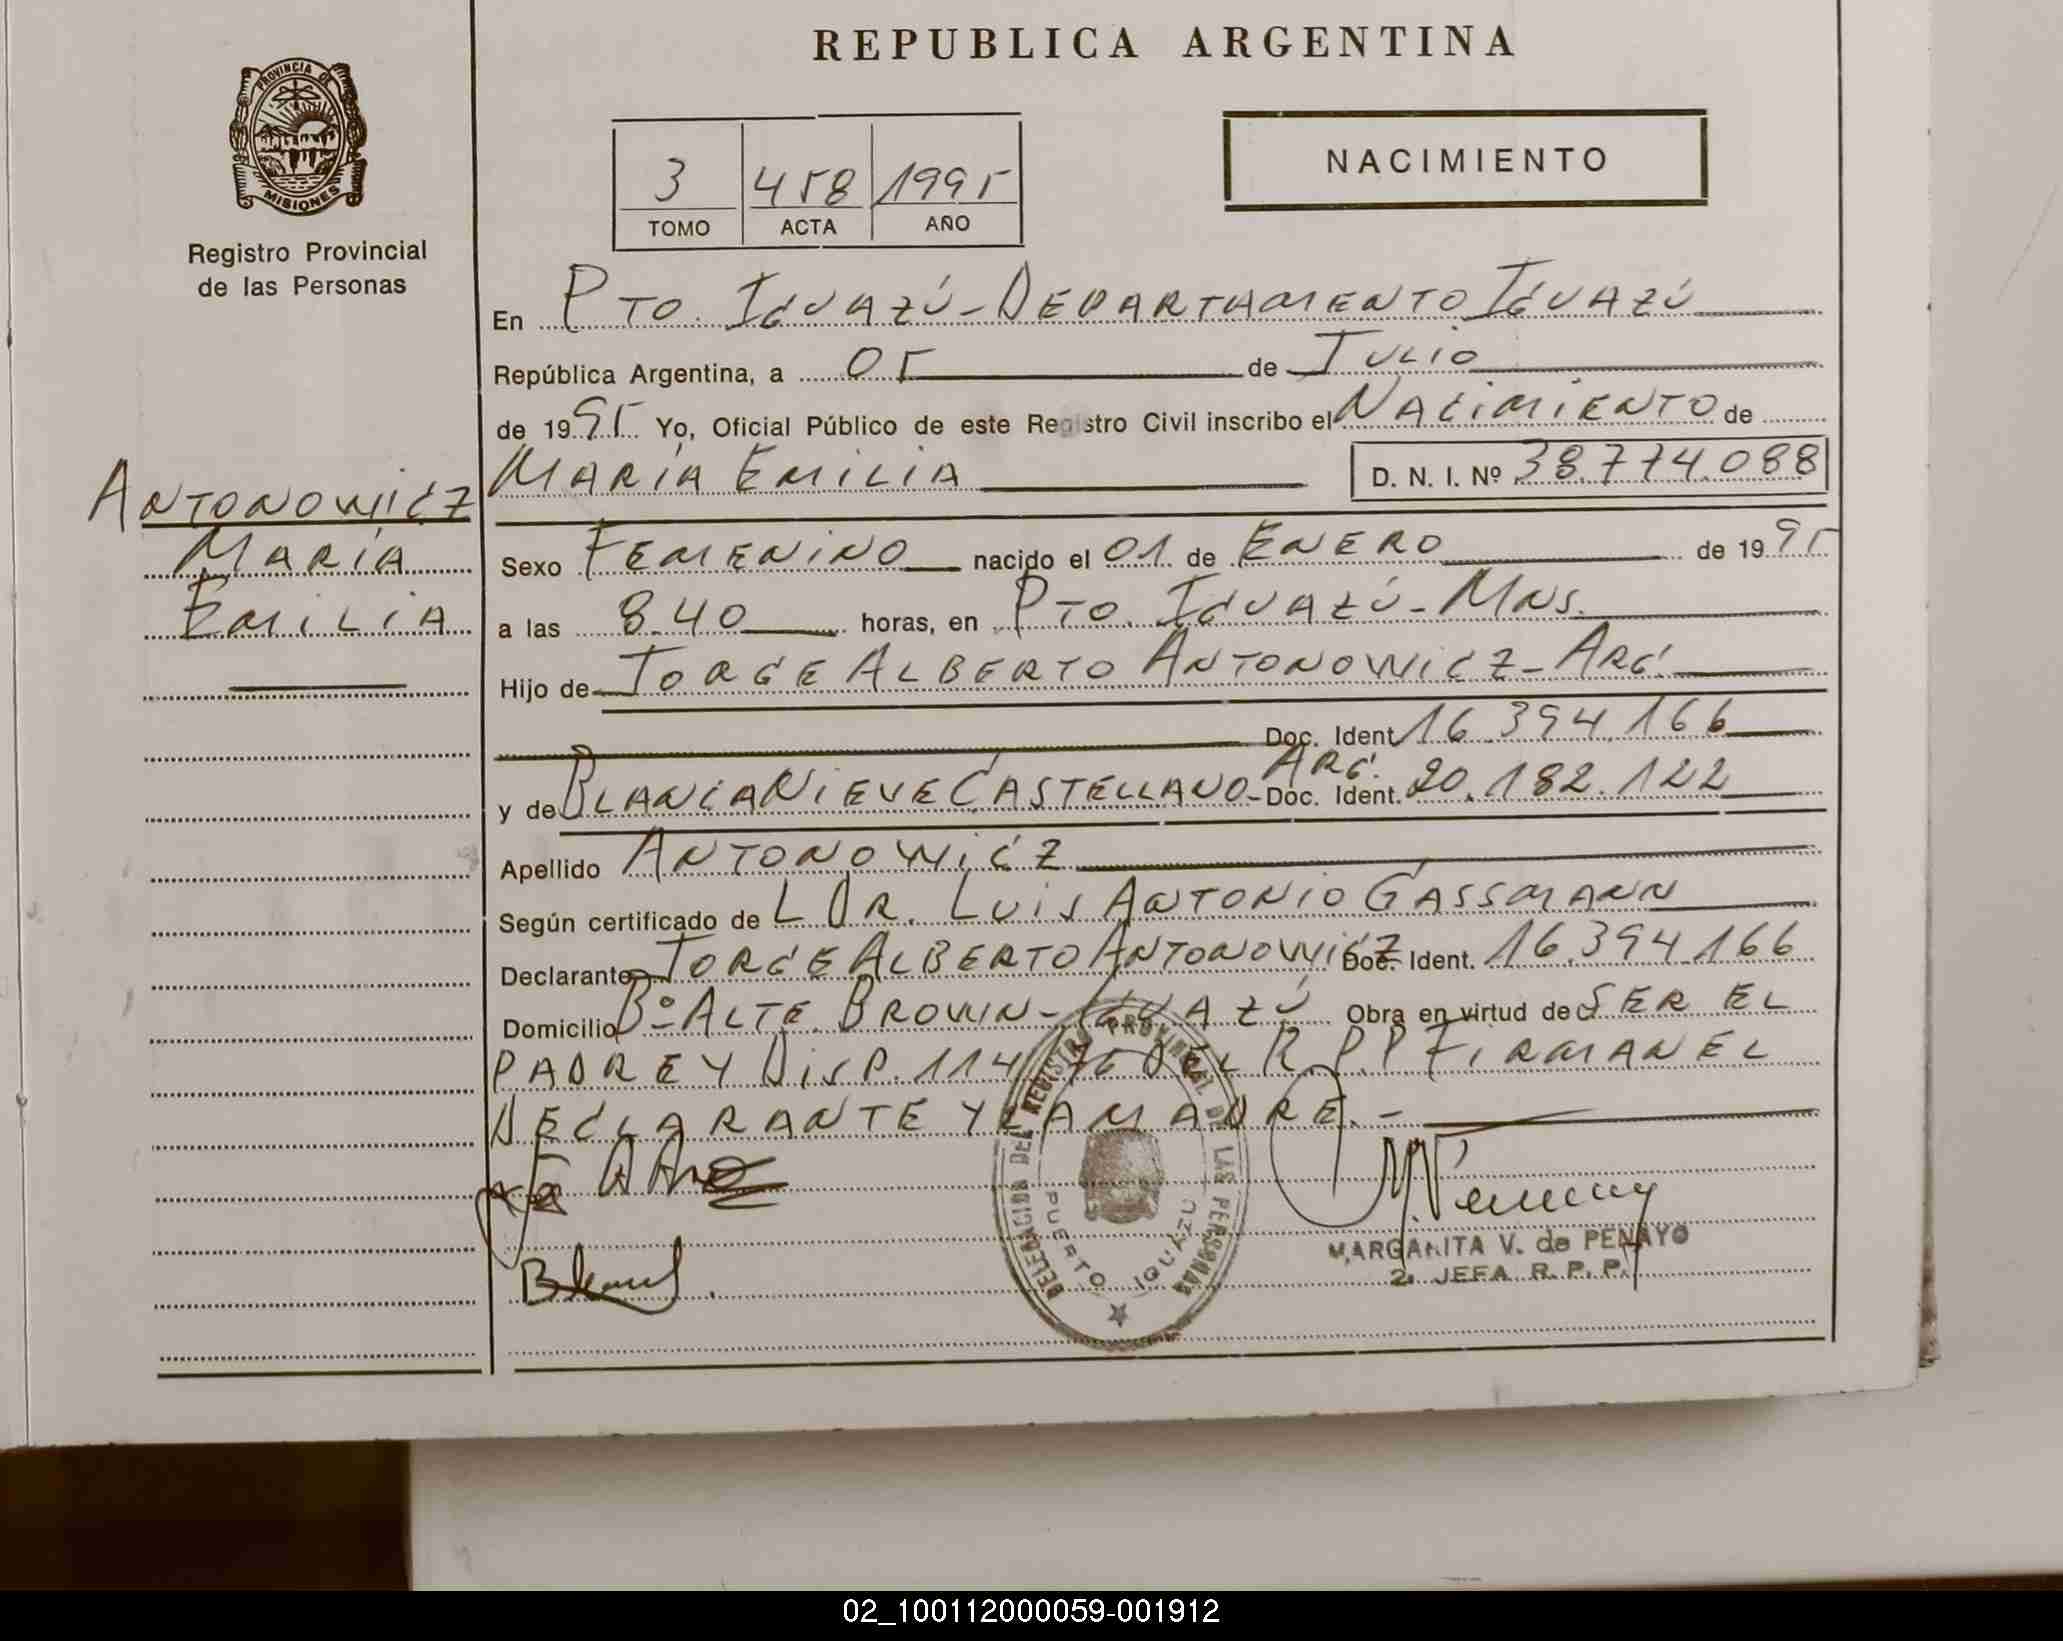 REPUBLICA ARGENTINA
PROVINCIA DE
MISIONES
Registro Provincial
de las Personas
3 458 1995
TOMO ACTA AÑO
NACIMIENTO
En PTO. IGUAZÚ - DEPARTAMENTO IGUAZÚ
República Argentina, a 05 de JULIO
de 1995 Yo, Oficial Público de este Registro Civil inscribo el NACIMIENTO de
MARÍA EMILIA D. N. I. Nº 38.774.088
ANTONOWICZ
MARÍA
EMILIA
Sexo FEMENINO nacido el 01 de ENERO de 1995
a las 8.40 horas, en PTO. IGUAZÚ - MNS.
Hijo de JORGE ALBERTO ANTONOWICZ - ARG.
Doc. Ident. 16.394.166
y de BLANCA NIEVE CASTELLANO - ARG. Doc. Ident. 20.182.122
Apellido ANTONOWICZ
Según certificado de L DR. LUIS ANTONIO GASSMANN
Declarante JORGE ALBERTO ANTONOWICZ Doc. Ident. 16.394.166
Domicilio Bº ALTE BROWN - IGUAZÚ Obra en virtud de SER EL
PADRE Y DISP. 114/76 DEL R.P.P FIRMAN EL
DECLARANTE Y LA MADRE. -
DELEGACION DEL REGISTRO PROVINCIAL DE LAS PERSONAS
PUERTO IGUAZU
MARGARITA V. de PENAYO
2. JEFA R. P. P.
02_100112000059-001912